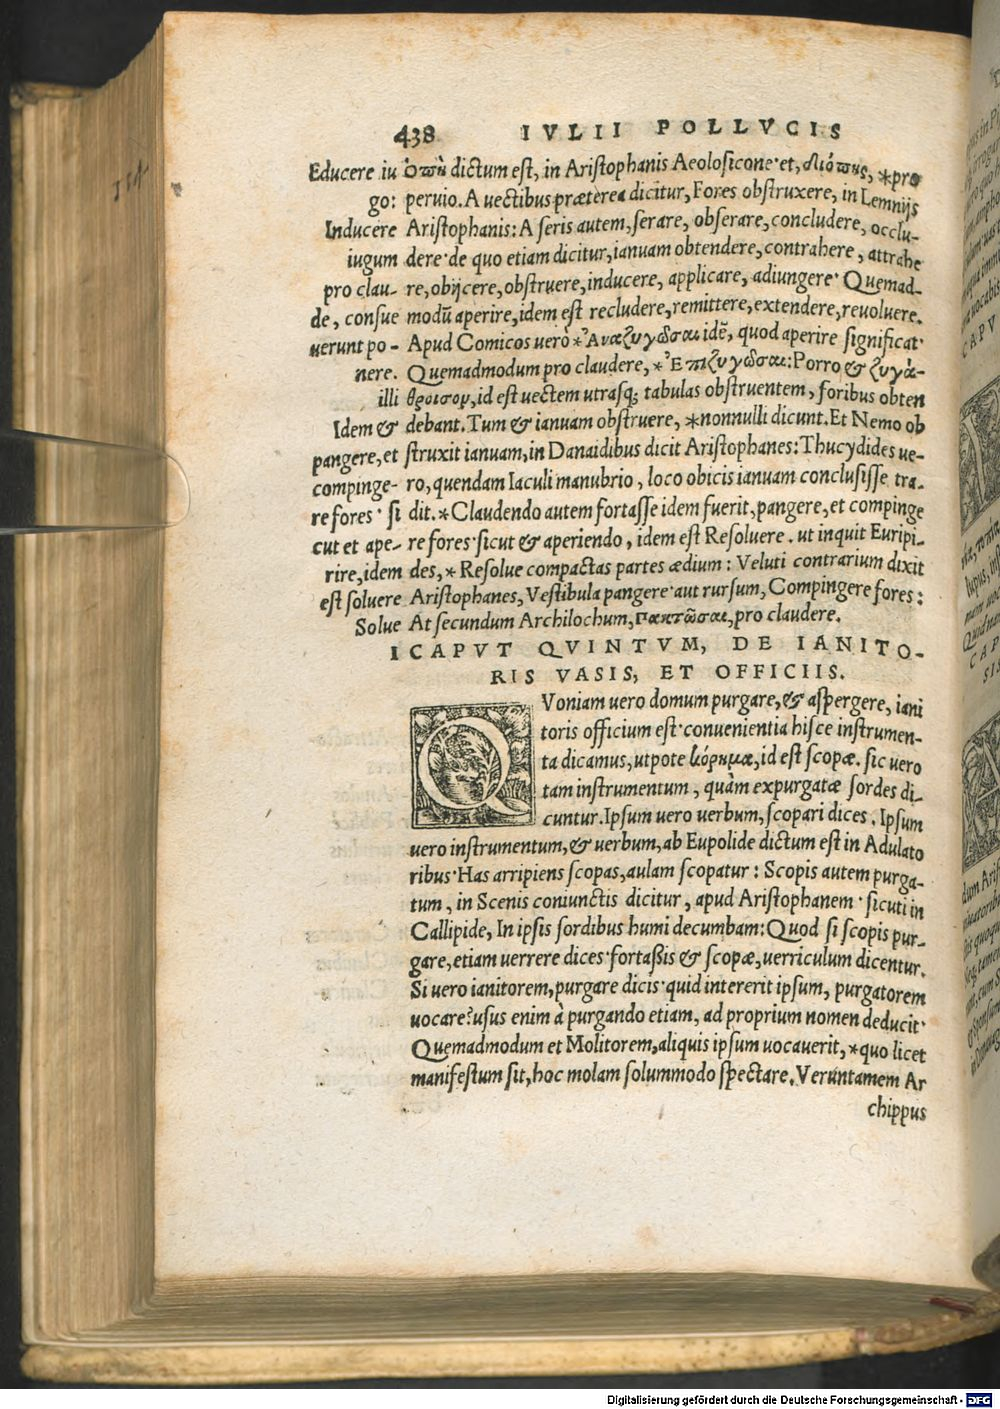 438 IVLII POLLVCIS
Educere iu
go:
Inducere
iugum
pro clau-
de, consue
uerunt po-
nere.
illi
Idem &
pangere, et
compinge-
re fores· si
cut et ape-
rire, idem
est soluere
Solue
ὀπὴ dictum est, in Aristophanis Aeolosicone· et, *pro
peruio. A uectibus præterea dicitur, Fores obstruxere, in Lemnijs
Aristophanis: A seris autem, serare, obserare, concludere, occlu-
dere· de quo etiam dicitur, ianuam obtendere, contrahere, attrahe
re, obijcere, obstruere, inducere, applicare, adiungere· Quemad-
modũ aperire, idem est recludere, remittere, extendere, reuoluere.
Apud Comicos uero *Ἀναζυγῶσαι idẽ, quod aperire significat·
Quemadmodum pro claudere, *Ἐπιζυγῶσαι: Porro & ζυγὰ-
id est uectem utrasq; tabulas obstruentem, foribus obten
debant. Tum & ianuam obstruere, *nonnulli dicunt. Et Nemo ob
struxit ianuam, in Danaidibus dicit Aristophanes: Thucydides ue-
ro, quendam Iaculi manubrio, loco obicis ianuam conclusisse tra-
dit. *Claudendo autem fortasse idem fuerit, pangere, et compinge
re fores· sicut & aperiendo, idem est Resoluere. ut inquit Euripi-
des, *Resolue compactas partes ædium: Veluti contrarium dixit
Aristophanes, Vestibula pangere· aut rursum, Compingere fores:
At secundum Archilochum, πακτῶσαι, pro claudere.
I CAPVT QVINTVM, DE IANITO-
RIS VASIS, ET OFFICIIS.
QVoniam uero domum purgare, & aspergere, iani
toris officium est· conuenientia hisce instrumen-
ta dicamus, utpote κόρημα, id est scopæ. sic uero
tam instrumentum, quàm expurgatæ sordes di-
cuntur. Ipsum uero uerbum, scopari dices. Ipsum
uero instrumentum, & uerbum, ab Eupolide dictum est in Adulato
ribus· Has arripiens scopas, aulam scopatur: Scopis autem purga-
tum, in Scenis coniunctis dicitur, apud Aristophanem· sicuti in
Callipide, In ipsis sordibus humi decumbam: Quod si scopis pur-
gare, etiam uerrere dices· fortaßis & scopæ, uerriculum dicentur.
Si uero ianitorem, purgare dicis· quid intererit ipsum, purgatorem
uocare? usus enim à purgando etiam, ad proprium nomen deducit·
Quemadmodum et Molitorem, aliquis ipsum uocauerit, *quo licet
manifestum sit, hoc molam solummodo spectare. Veruntamem Ar
chippus
Digitalisierung gefördert durch die Deutsche Forschungsgemeinschaft - DFG